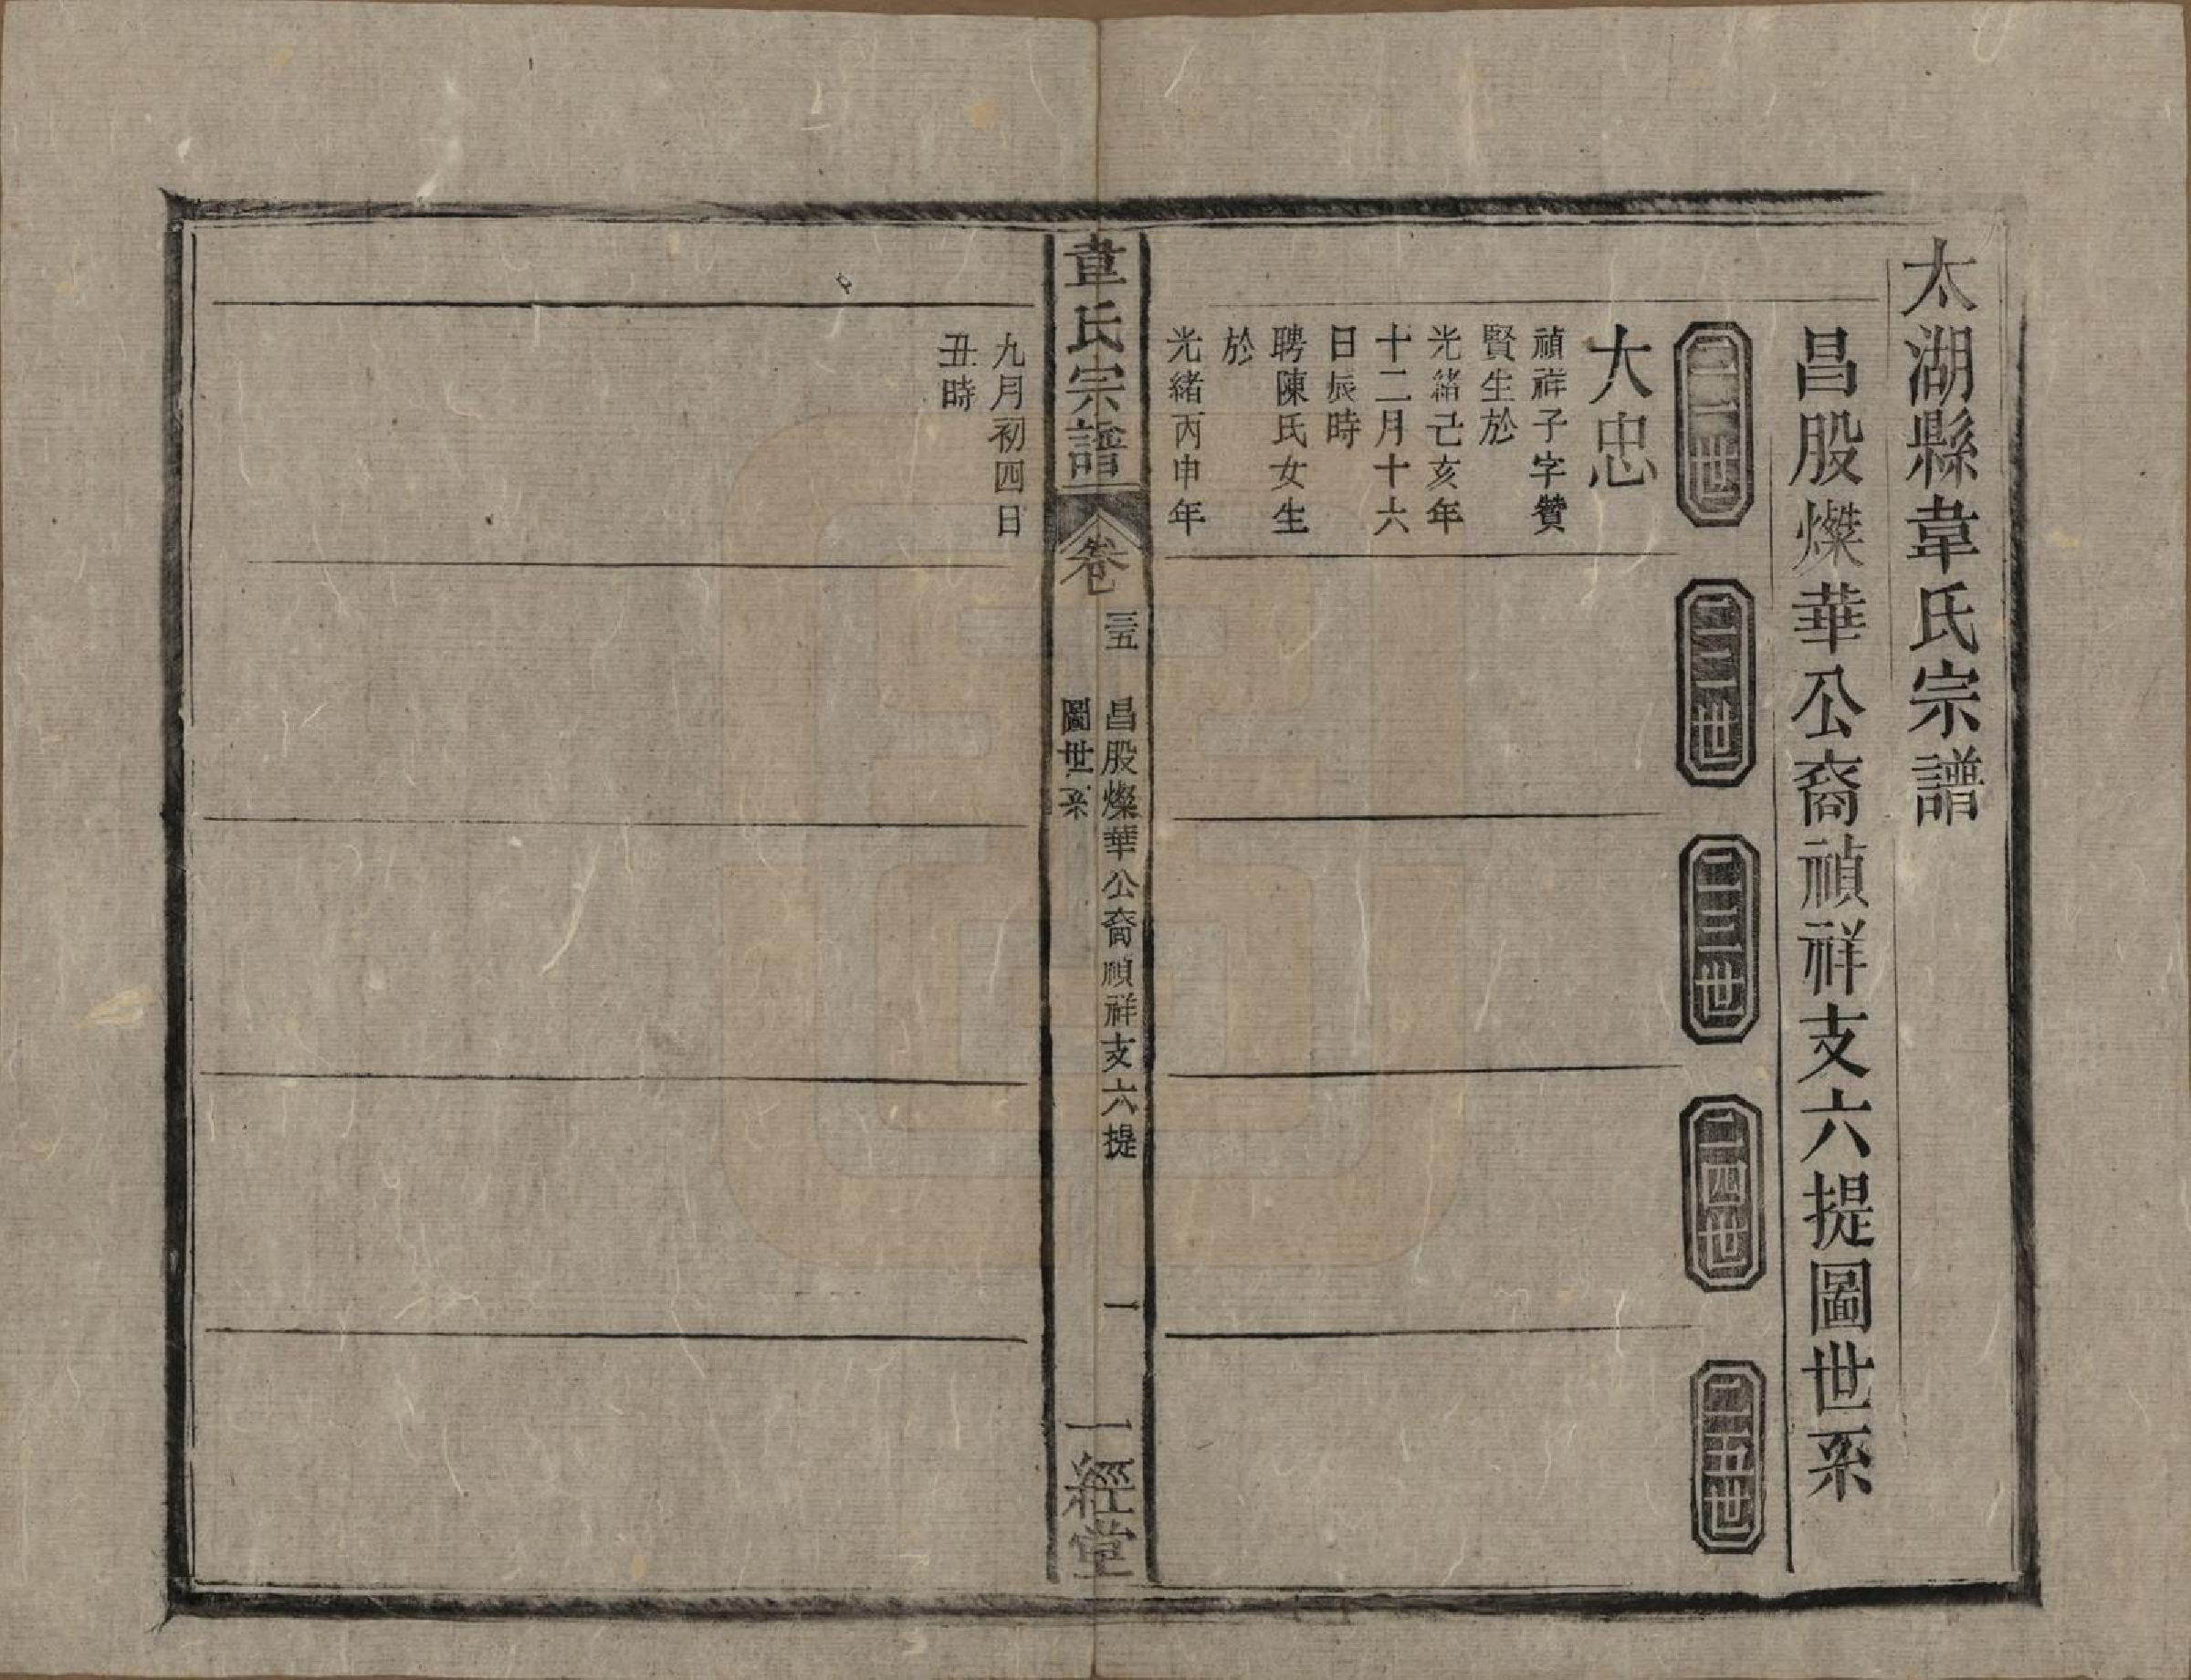 太湖縣韋氏宗譜
昌股燦華公裔禎祥支六提圖世系
二一世
二二世
二三世
二四世
二五世
大忠
禎祥子字贊
賢生於
光緒己亥年
十二月十六
日辰時
聘陳氏女生
於
光緒丙申年
韋氏宗譜
卷
三五
昌股燦華公裔禎祥支六提
圖世系
一
一經堂
九月初四日
丑時